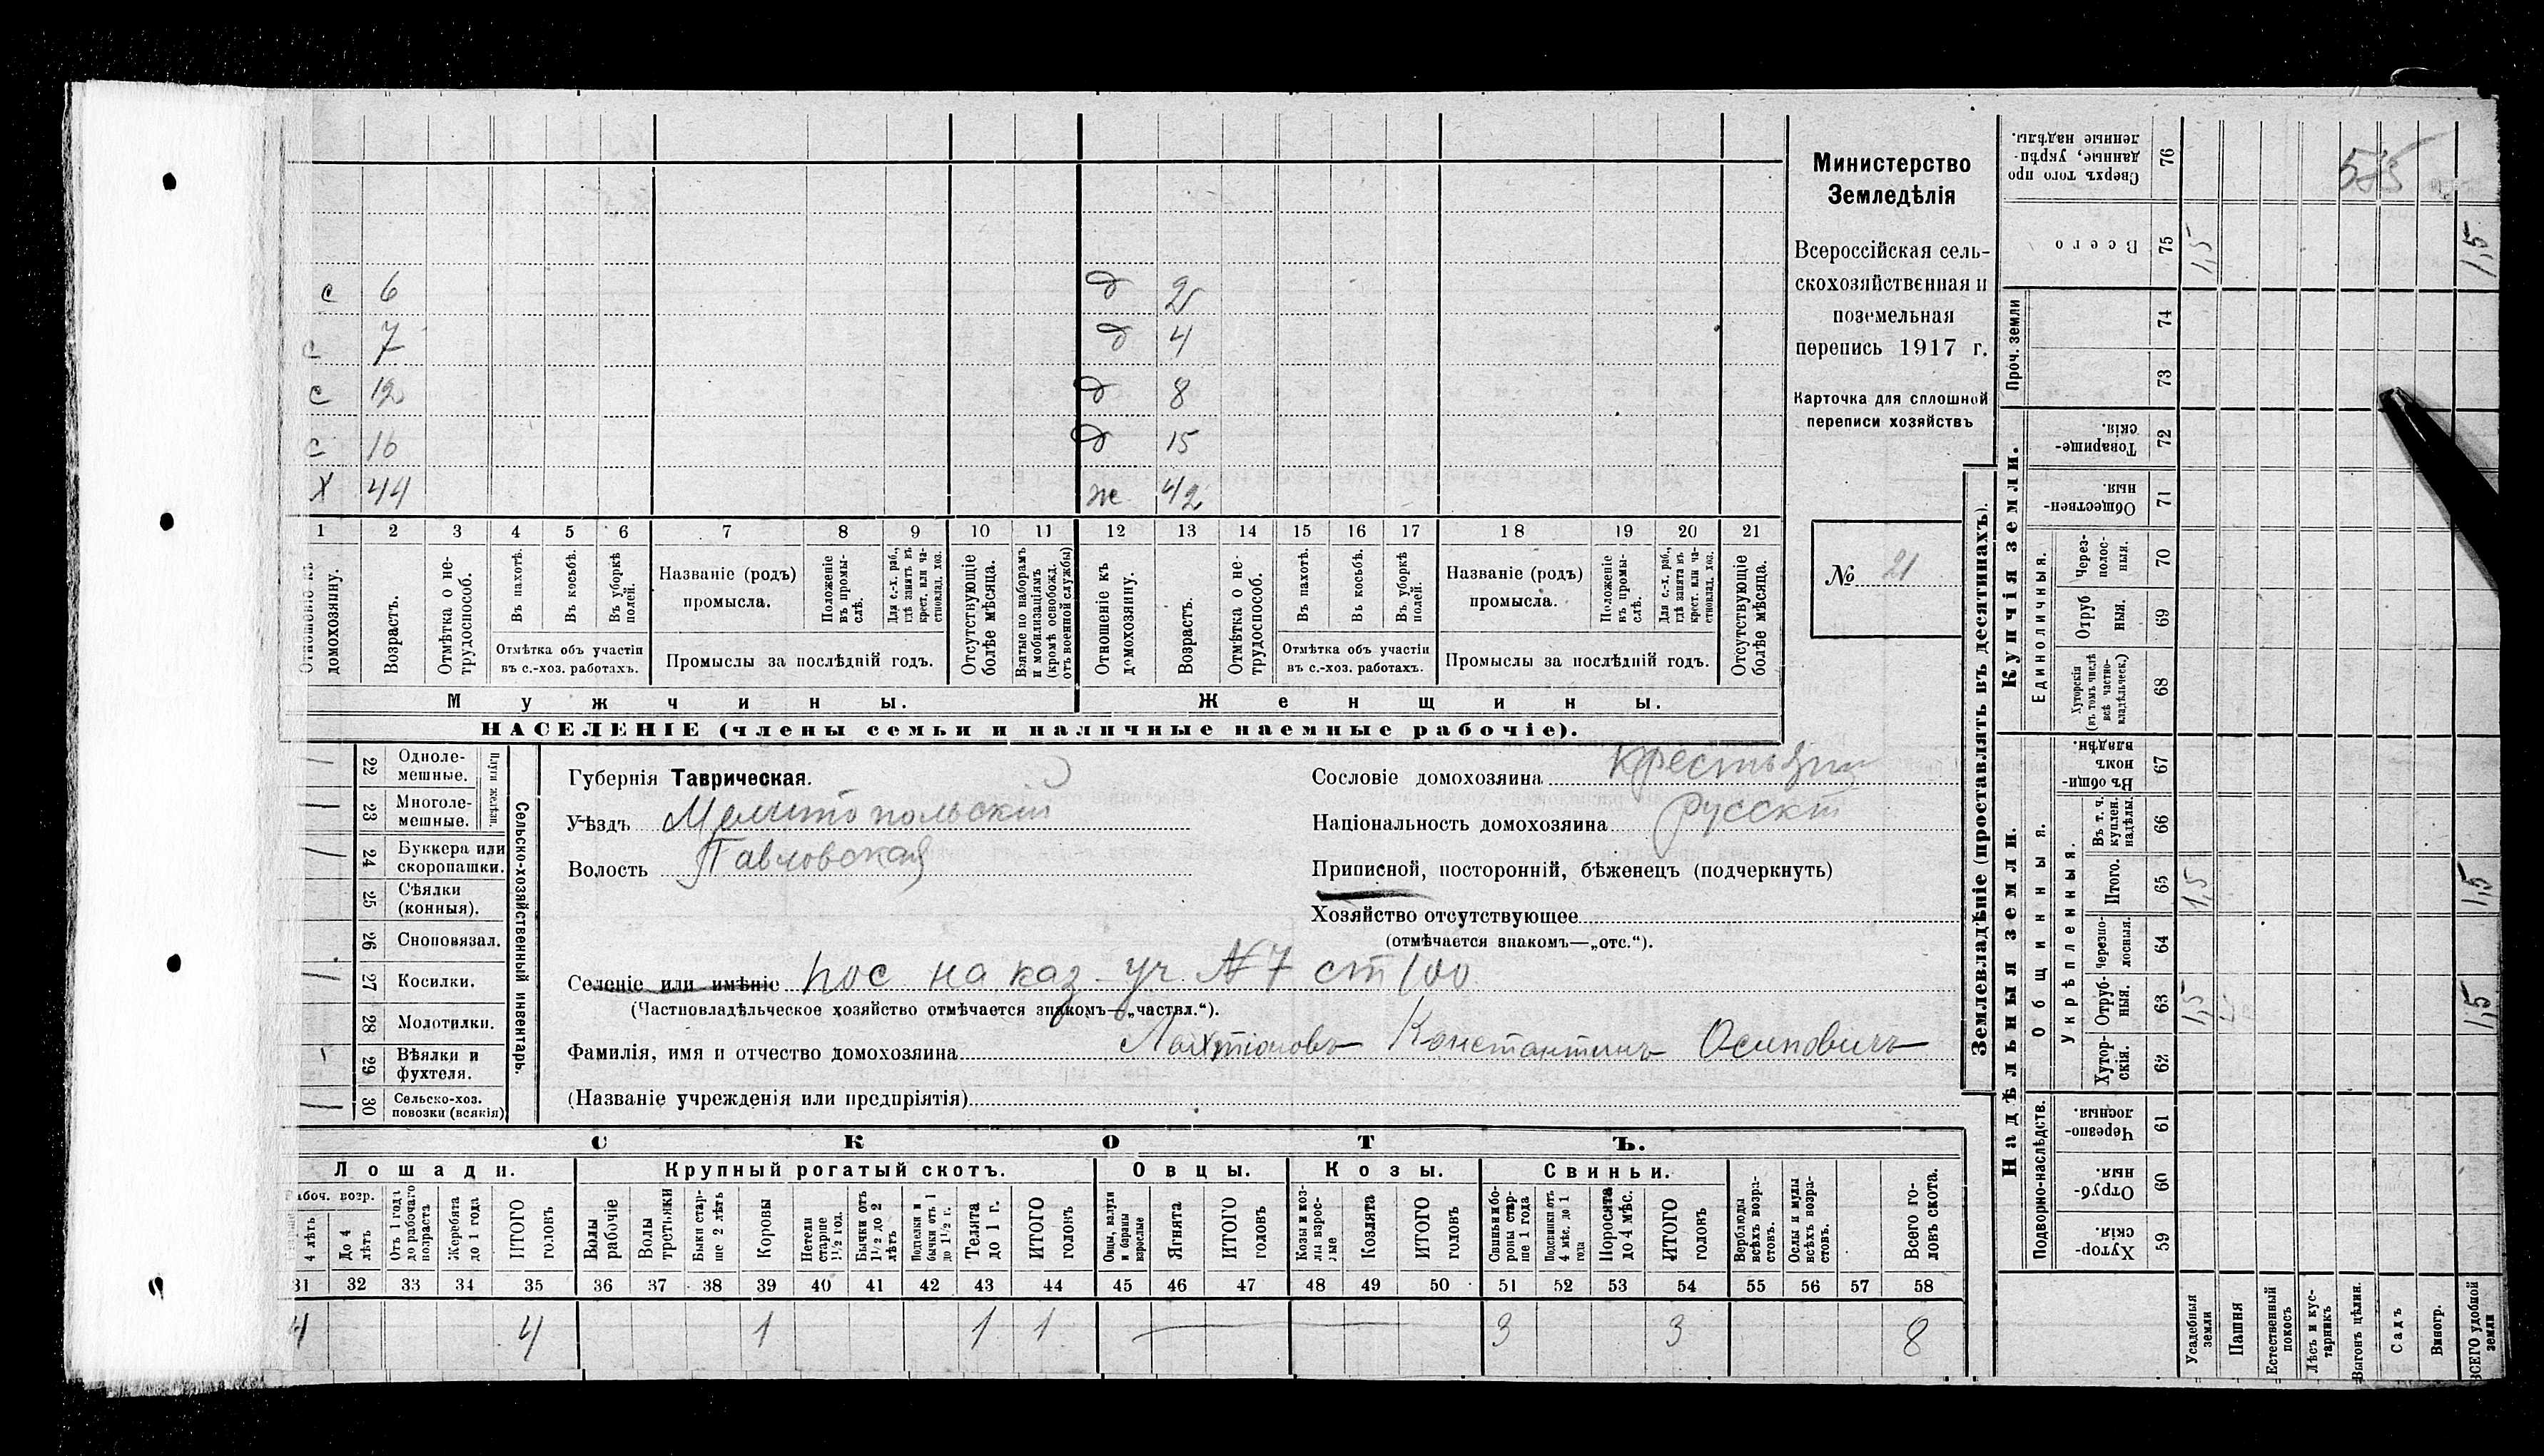 с 6 д 2
с 7 д 4
с 12 д 8
с 16 д 15
Х 44 ж 42
1 2 3 4 5 6 7 8 9 10 11 12 13 14 15 16 17 18 19 20 21
Отношеніе къ домохозяину.
Возрастъ.
Отмѣтка о не-трудоспособ.
Въ пахотѣ.
Въ косьбѣ.
Въ уборкѣ полей.
Отмѣтка объ участіи
въ с.-хоз. работахъ.
Названіе (родъ)
промысла.
Положеніе въ промы-слѣ.
Для с.-х. раб., гдѣ занятъ въ крест. или ча-стновлад. хоз.
Промыслы за послѣдній годъ.
Отсутствующіе болѣе мѣсяца.
Взятые по наборамъ и мобилизаціямъ (кромѣ освобожд. отъ военной службы)
Отношеніе къ домохозяину.
Возрастъ.
Отмѣтка о не-трудоспособ.
Въ пахотѣ.
Въ косьбѣ.
Въ уборкѣ полей.
Отмѣтка объ участіи
въ с.-хоз. работахъ.
Названіе (родъ)
промысла.
Положеніе въ промы-слѣ.
Для с.-х. раб., гдѣ занята въ крест. или ча-стновлад. хоз.
Промыслы за послѣдній годъ.
Отсутствующіе болѣе мѣсяца.
Мужчины. Женщины.
НАСЕЛЕНІЕ (члены семьи и наличные наемные рабочіе).
Министерство
Земледѣлія
Всероссійская сель-
скохозяйственная и
поземельная
перепись 1917 г.
Карточка для сплошной
переписи хозяйствъ
№ 21
22 Одноле-мешные.
23 Многоле-мешные.
Плуги желѣзн.
24 Буккера или скоропашки.
25 Сѣялки (конныя).
26 Сноповязал.
27 Косилки.
28 Молотилки.
29 Вѣялки и фухтеля.
30 Сельско-хоз. повозки (всякія)
Сельско-хозяйственный инвентарь.
Губернія Таврическая.
Уѣздъ Мелитопольскій
Волость Павловская
Сословіе домохозяина Крестьянин
Національность домохозяина Русскій
Приписной, посторонній, бѣженецъ (подчеркнуть)
Хозяйство отсутствующее
(отмѣчается знакомъ—„отс.“).
Селеніе или имѣніе пос на каз. уч. №7 ст 100
(Частновладѣльческое хозяйство отмѣчается знакомъ—„частвл.“).
Фамилія, имя и отчество домохозяина Лахтіоновъ Константинъ Осиповичъ
(Названіе учрежденія или предпріятія)
СКОТЪ.
Лошади. Крупный рогатый скотъ. Овцы. Козы. Свиньи.
Рабоч. возр.
4 лѣтъ
До 4 лѣтъ
Отъ 1 года до рабочаго возраста
Жеребята до 1 года
ИТОГО головъ
Волы рабочіе
Волы третьяки
Быки стар-ше 2 лѣтъ
Коровы
Нетели старше 1½ год.
Бычки отъ 1½ до 2 лѣтъ
Подтелки и бычки отъ 1 до 1½ г.
Телята до 1 г.
ИТОГО головъ
Овцы, валухи и бараны взрослые
Ягнята
ИТОГО головъ
Козы и коз-лы взрос-лые
Козлята
ИТОГО головъ
Свиньи и бо-ровы стар-ше 1 года
Подсвинки отъ 4 мѣс. до 1 года
Поросята до 4 мѣс.
ИТОГО головъ
Верблюды всѣхъ возра-стовъ.
Ослы и мулы всѣхъ возра-стовъ.
Всего го-ловъ скота.
31 32 33 34 35 36 37 38 39 40 41 42 43 44 45 46 47 48 49 50 51 52 53 54 55 56 57 58
4 4 1 1 1 3 3 8
Землевладѣніе (проставлять въ десятинахъ).
Купчія земли.
Надѣльныя земли.
Проч. земли
Единоличныя.
Общинныя.
Укрѣпленныя.
Подворно-наслѣдств.
Сверхъ того про данные, укрѣп-ленные надѣлы. 76
Всего 75 1,5 1,5
74
73
Товарище-скія. 72
Обществен-ныя. 71
Через-полос-ныя. 70
Отруб ныя. 69
Хуторскія (въ томъ числѣ всѣ частно-владѣльческ.) 68
Въ общи-номъ владѣн. 67
Въ т. ч. куплен. надѣлы. 66
Итого. 65 1,5 1,5
Черезпо-лосныя. 64
Отруб-ныя. 63 1,5 1,5
Хутор-скія. 62
Черезпо-лосныя. 61
Отруб-ныя. 60
Хутор-скія. 59
Усадебныя земли
Пашня
Естественный покосъ
Лѣсъ и кус-тарникъ
Выгонъ цѣлин.
Садъ
Виногр.
ВСЕГО удобной земли